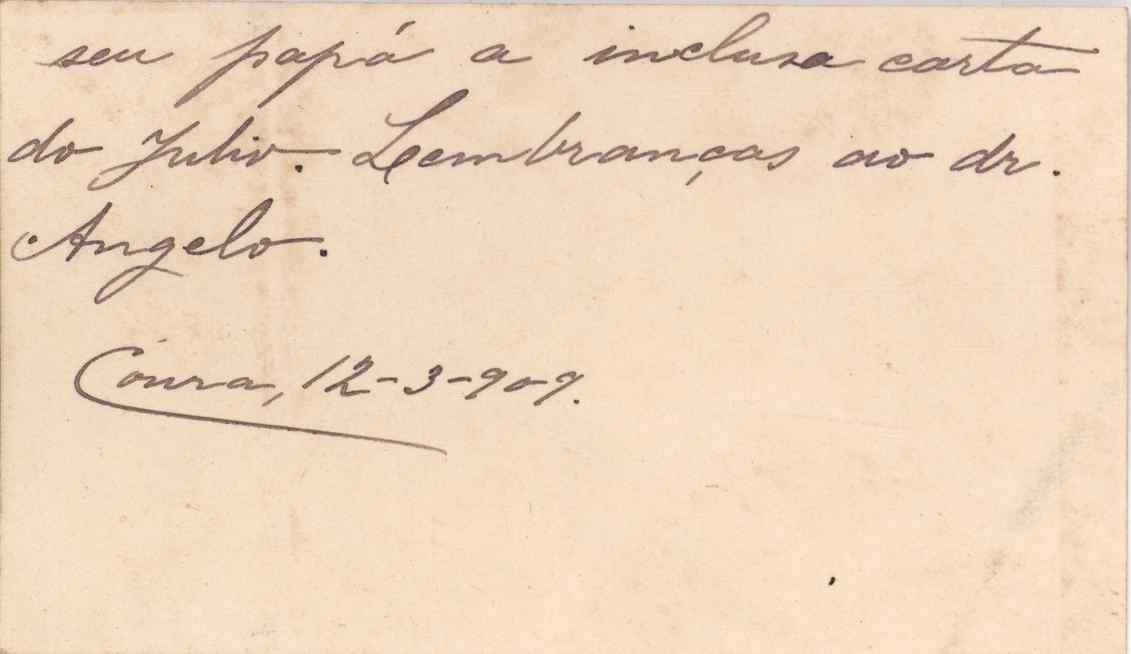 seu papá a inclusa carta
do Julio. Lembranças ao dr.
Angelo.
Coura, 12-3-909.